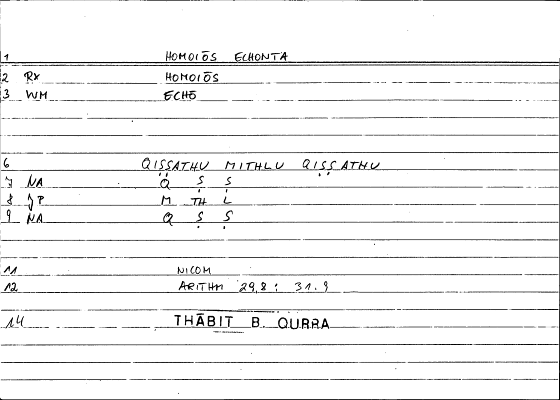 1 HOMOIŌS ECHONTA
2 Rx HOMOIŌS
3 WM ECHŌ
6 QIṢṢATHU MITHLU QIṢṢATHU
7 NA Q Ṣ Ṣ
8 JP M TH L
9 NA Q Ṣ Ṣ
11 NICOM
12 ARITHM 29,8 : 31.9
14 THĀBIT B. QURRA